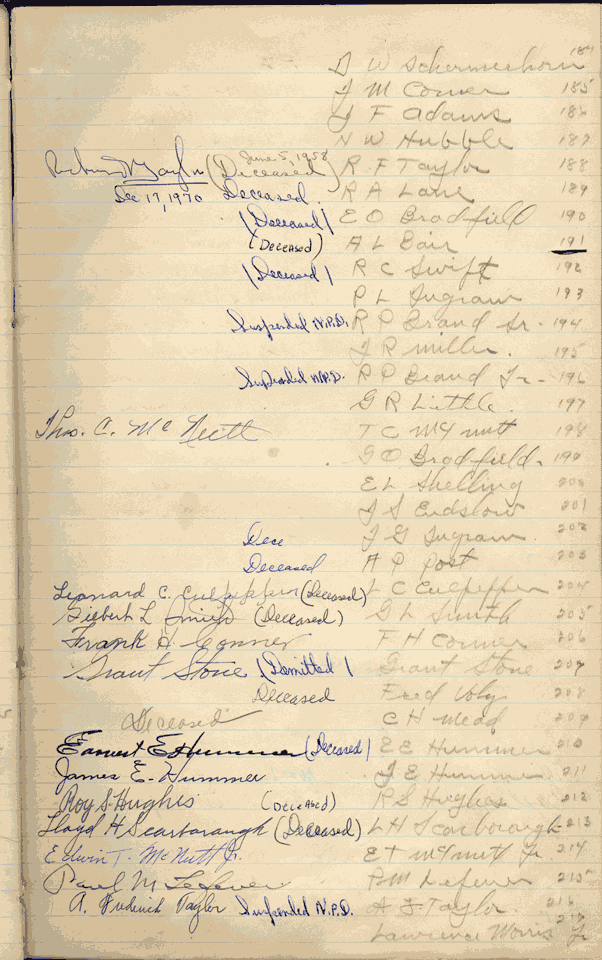 D W Schermerhorn 184
J M Conner 185
J F Adams 186
N W Hubble 187
June 5, 1958
(Deceased) R F Taylor 188
Dec 17, 1970 Deceased. R A Lane 189
(Deceased) E O Bradfield 190
(Deceased) A L Bair 191
(Deceased) R C Swift 192
P L Ingram 193
Suspended N.P.D. R P Brand Sr. 194
J R Miller. 195
Suspended N.P.D. R P Brand Jr. 196
G R Little. 197
Thos. C. McNutt T C McNutt 198
G O Bradfield. 199
E L Shelling 200
J S Endslow 201
Dece J G Ingram 202
Deceased A P Post 203
Leonard C. Culpepper (Deceased) L C Culpepper 204
Gilbert L Smith (Deceased) G L Smith 205
Frank H. Conner F H Conner 206
Grant Stone (Demitted) Grant Stone 207
Deceased Fred 208
Deceased C H Mead 209
Earnest E Hummer (Deceased) E E Hummer 210
James E. Hummer J E Hummer 211
Roy S Hughes (Deceased) R S Hughes 212
Lloyd H Scarborough (Deceased) L H Scarborough 213
Edwin T. McNutt Jr. E T McNutt Jr. 214
Paul M Lefever P M Lefever 215
A. Frederick Taylor Suspended N.P.D. A F Taylor. 216
Lawrence Morris Jr 217